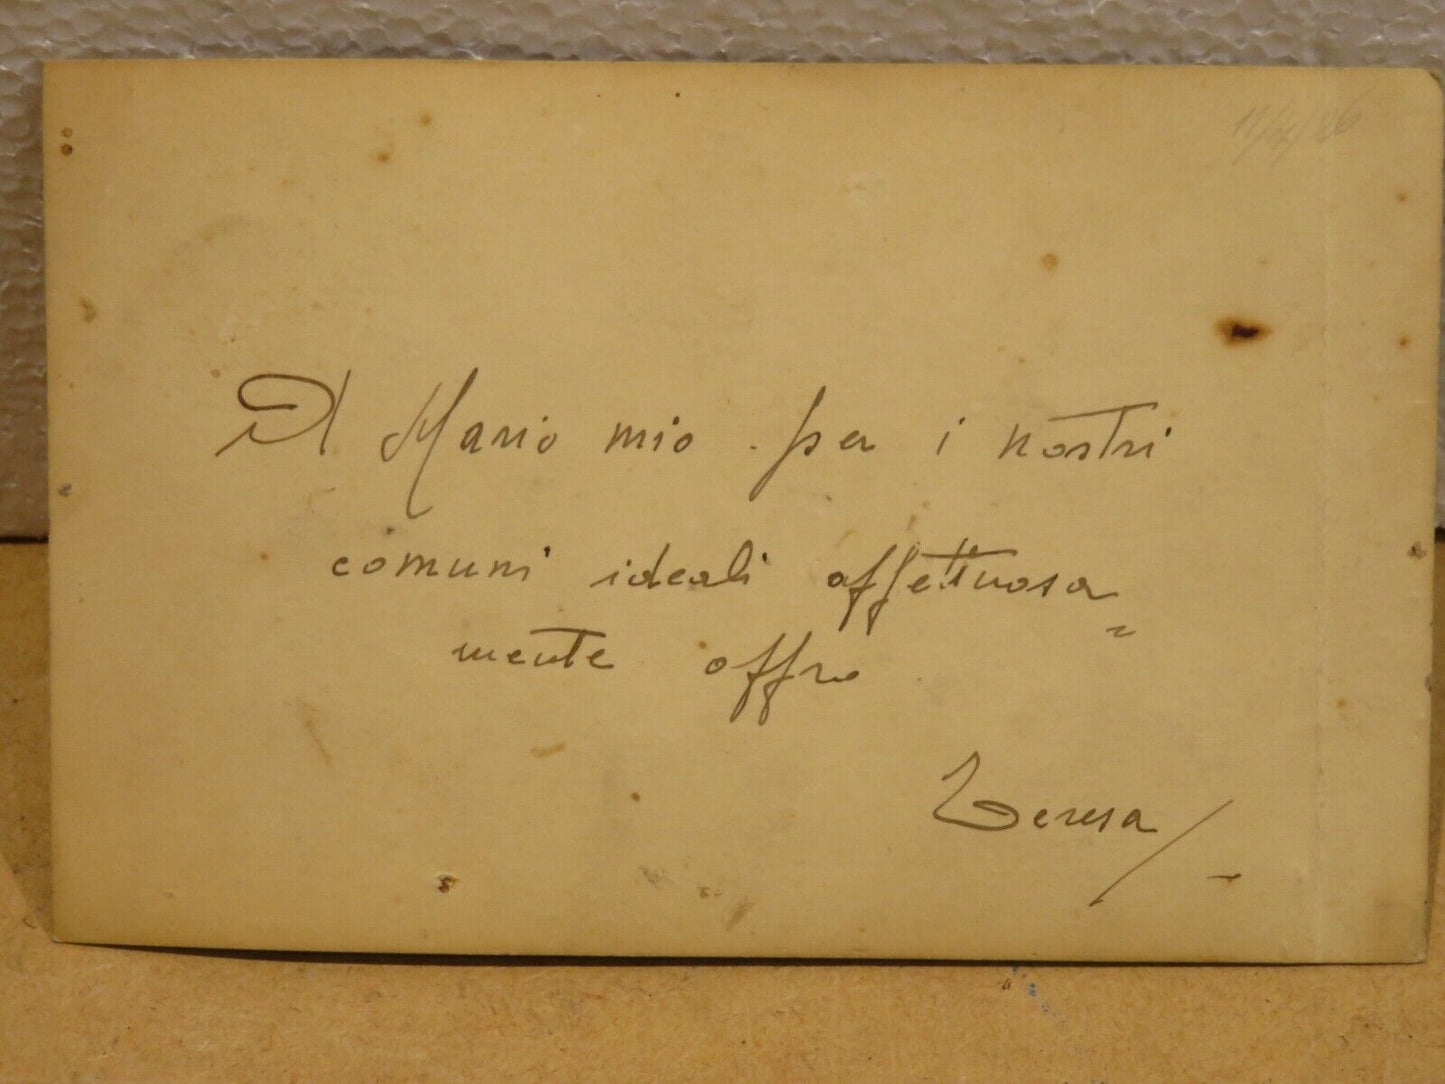 Al Mario mio per i nostri
comuni ideali affettuosa=
mente offro
Teresa